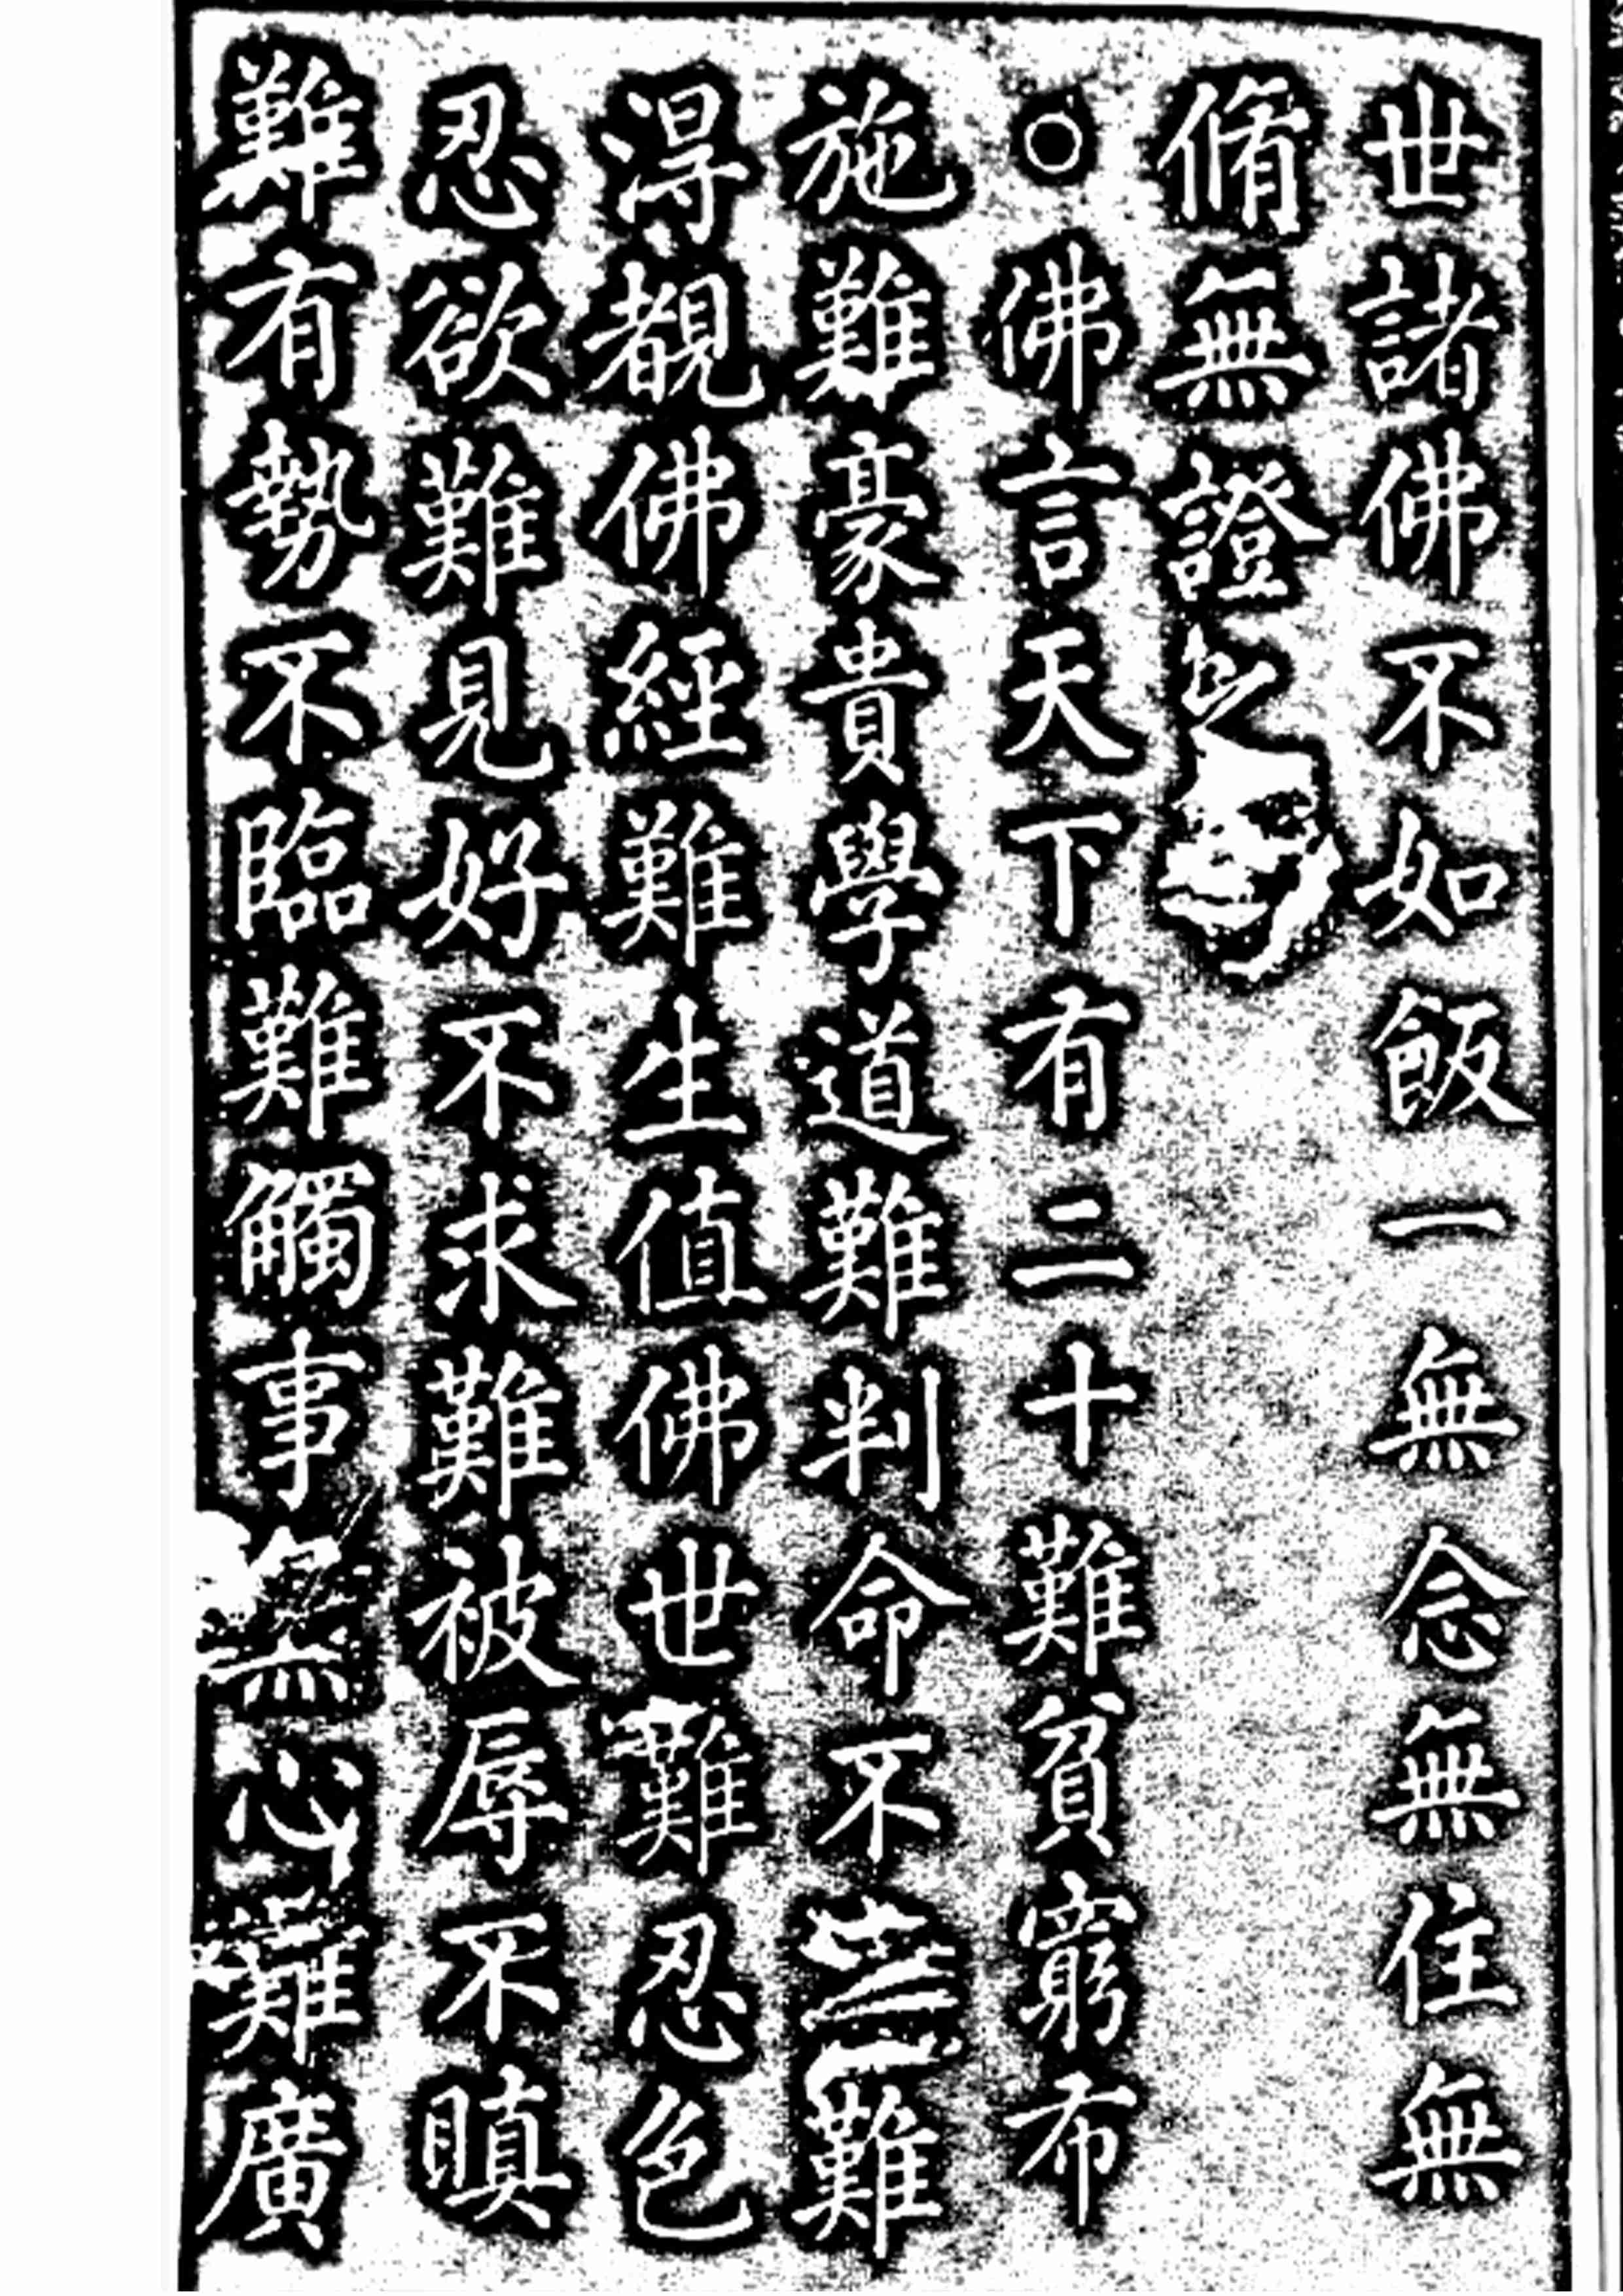 世諸佛不如飯一無念無住無
脩無證之
○佛言天下有二十難貧窮布
施難豪貴學道難判命不難
得覩佛經難生值佛世難忍色
忍欲難見好不求難被辱不瞋
難有勢不臨難觸事無心難廣